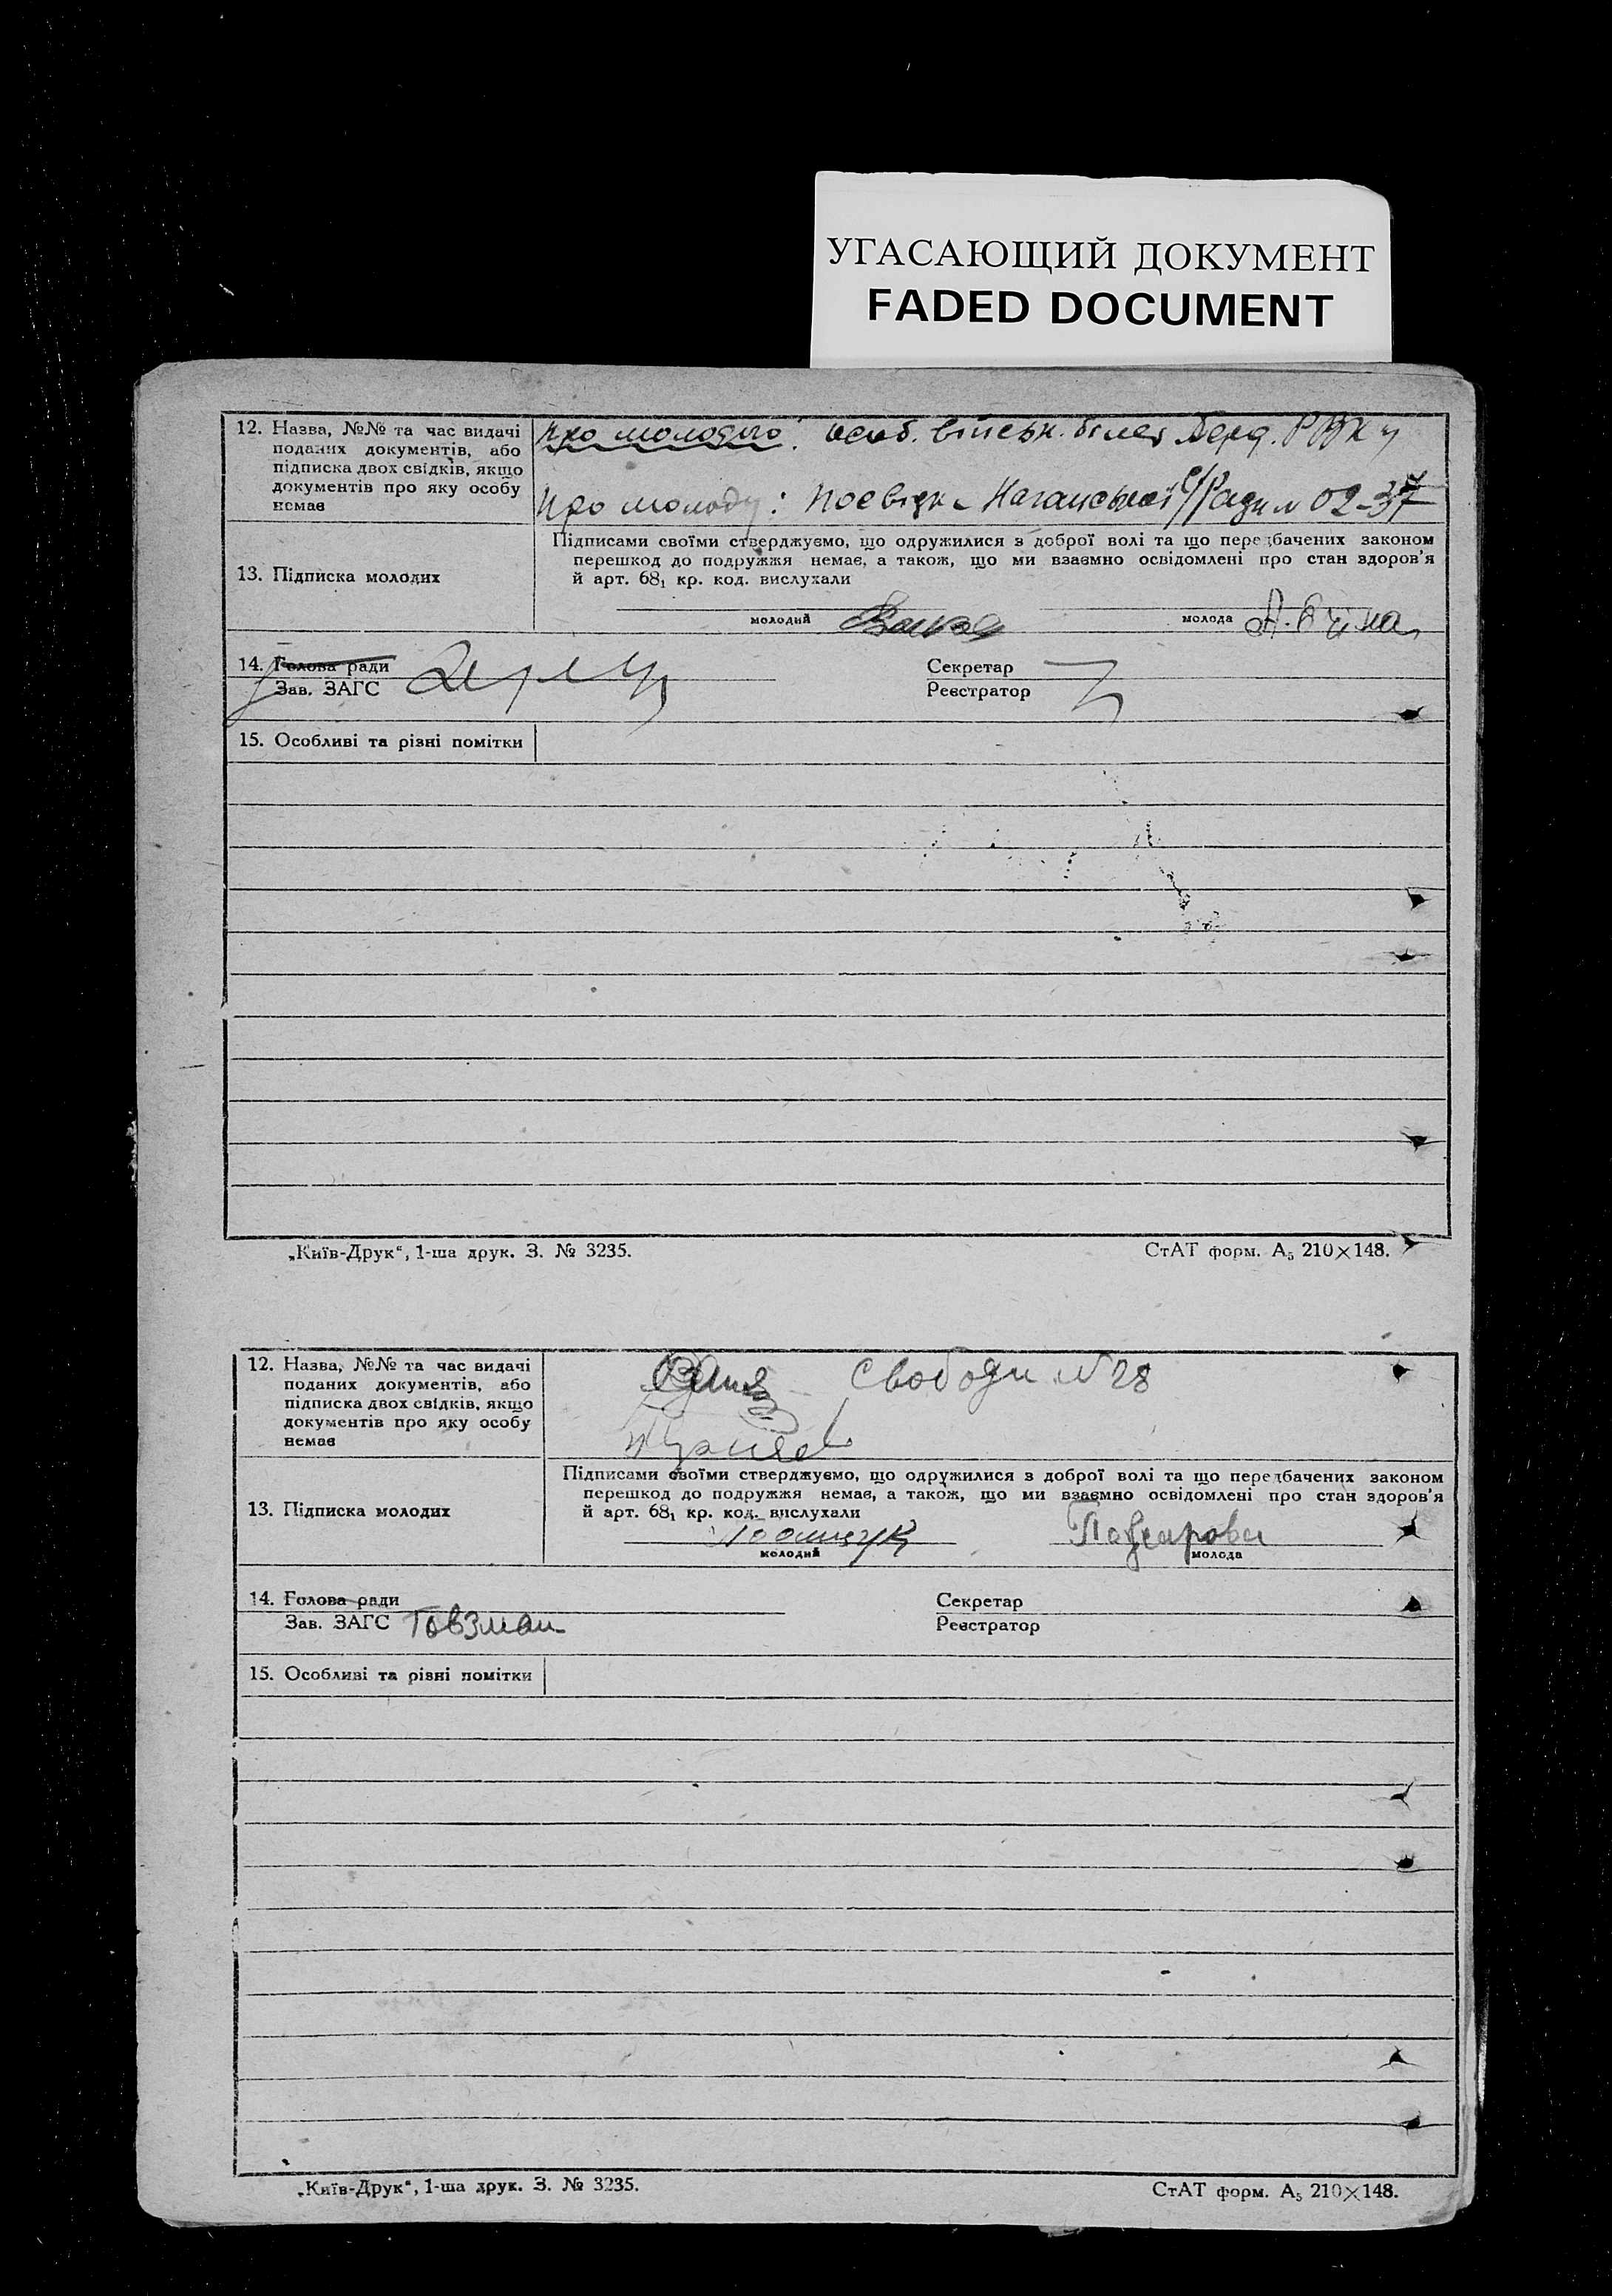 УГАСАЮЩИЙ ДОКУМЕНТ
FADED DOCUMENT
12. Назва, №№ та час видачі
поданих документів, або
підписка двох свідків, якщо
документів про яку особу
немає
про молодого: особ. військ. білет Берд. РВК у
про молоду: посвідк С/Ради № 02-37
13. Підписка молодих
Підписами своїми стверджуємо, що одружилися з доброї волі та що передбачених законом
перешкод до подружжя немає, а також, що ми взаємно освідомлені про стан здоров'я
й арт. 68₁ кр. код. вислухали
молодий
молода
14. Голова ради
Зав. ЗАГС
Секретар
Реєстратор
15. Особливі та різні помітки
„Київ-Друк“, 1-ша друк. З. № 3235.
СтАТ форм. А₅ 210×148.
12. Назва, №№ та час видачі
поданих документів, або
підписка двох свідків, якщо
документів про яку особу
немає
Свободи №28
13. Підписка молодих
Підписами своїми стверджуємо, що одружилися з доброї волі та що передбачених законом
перешкод до подружжя немає, а також, що ми взаємно освідомлені про стан здоров'я
й арт. 68₁ кр. код. вислухали
молодий
молода
14. Голова ради
Зав. ЗАГС Говзман
Секретар
Реєстратор
15. Особливі та різні помітки
„Київ-Друк“, 1-ша друк. З. № 3235.
СтАТ форм. А₅ 210×148.